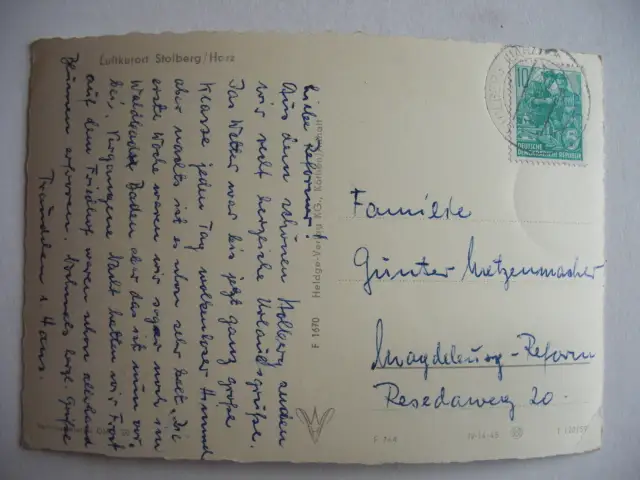 Luftkurort Stolberg/Harz
Liebe Reformer!
Aus dem schönen Stolberg senden
wir recht herzliche Urlaubsgrüße.
Das Wetter war bis jetzt ganz große
Klasse jeden Tag wolkenloser Himmel
aber nachts ist es schon sehr kalt. Die
erste Woche waren wir sogar noch im
Waldbad Baden aber das ist nun vor-
bei. Vergangene Nacht hatten wir Frost
auf dem Friedhof waren schon allerhand
Blumen erfroren. Nochmals herzl. Grüße
Traudchen u. Hans.
F 1670 Heldge-Verlag KG., Köthen/Anhalt
10
DEUTSCHE
DEMOKRATISCHE REPUBLIK
Familie
Günter Metzenmacher
Magdeburg-Reform
Resedaweg 20.